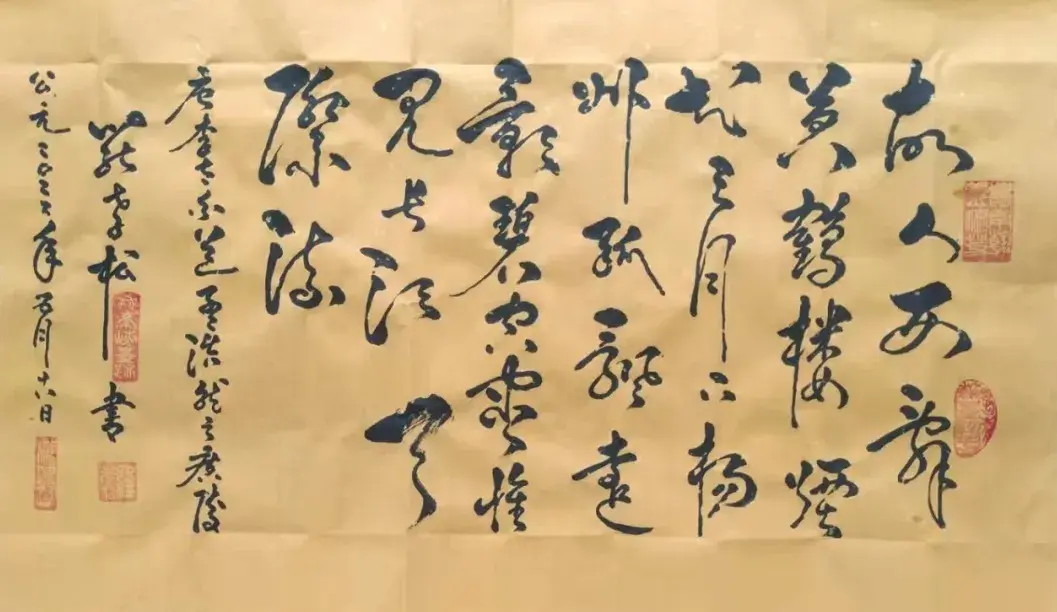 故人西辞
黄鶴楼煙
花三月下揚
州孤颿遠
影碧空盡惟
見长江天
際流
唐李太白送孟浩然之廣陵
松書
公元二〇二二年五月十八日